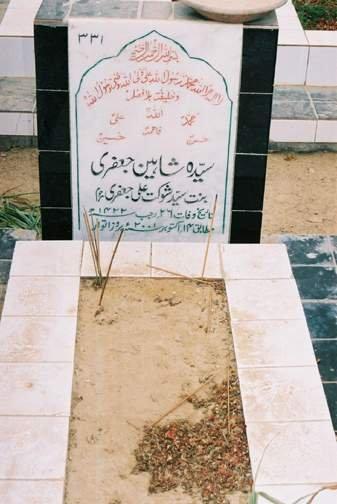 ۳۳۱
بسم اللہ الرحمن الرحیم
لا الہ الا اللہ محمد رسول اللہ علی ولی اللہ وصی رسول اللہ
و خلیفتہ بلا فصل
محمد اللہ علی
حسن فاطمہ حسین
سیدہ شاہین جعفری
بنت سید شوکت علی جعفری
تاریخ وفات ۲۶ رجب ۱۴۲۲ھ
مطابق ۱۴ اکتوبر ۲۰۰۱ء بروز اتوار